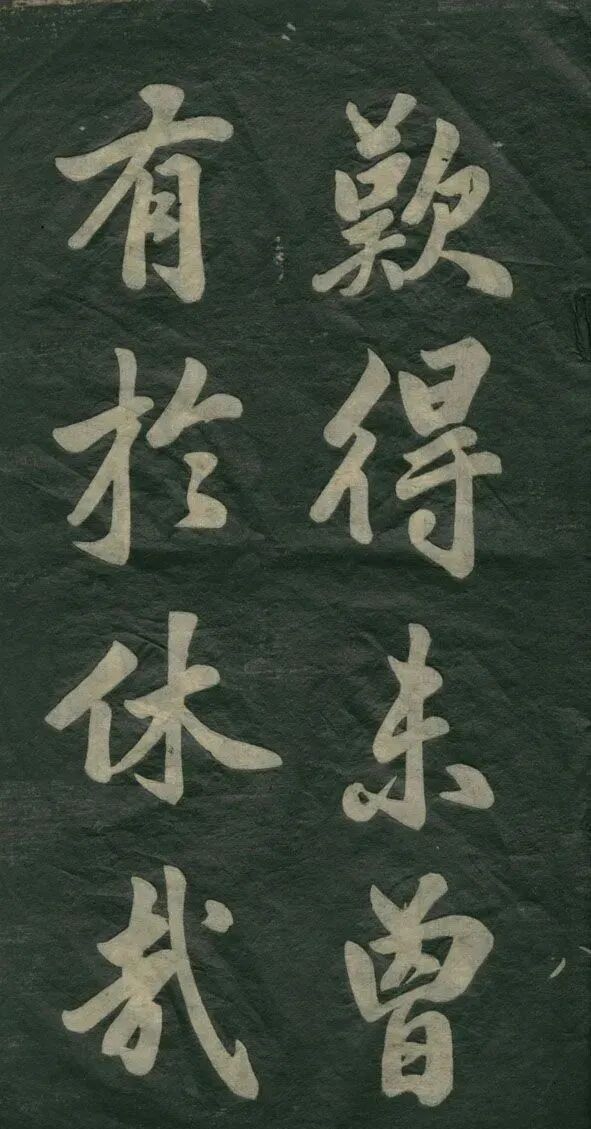 歎得未曾
有於休哉